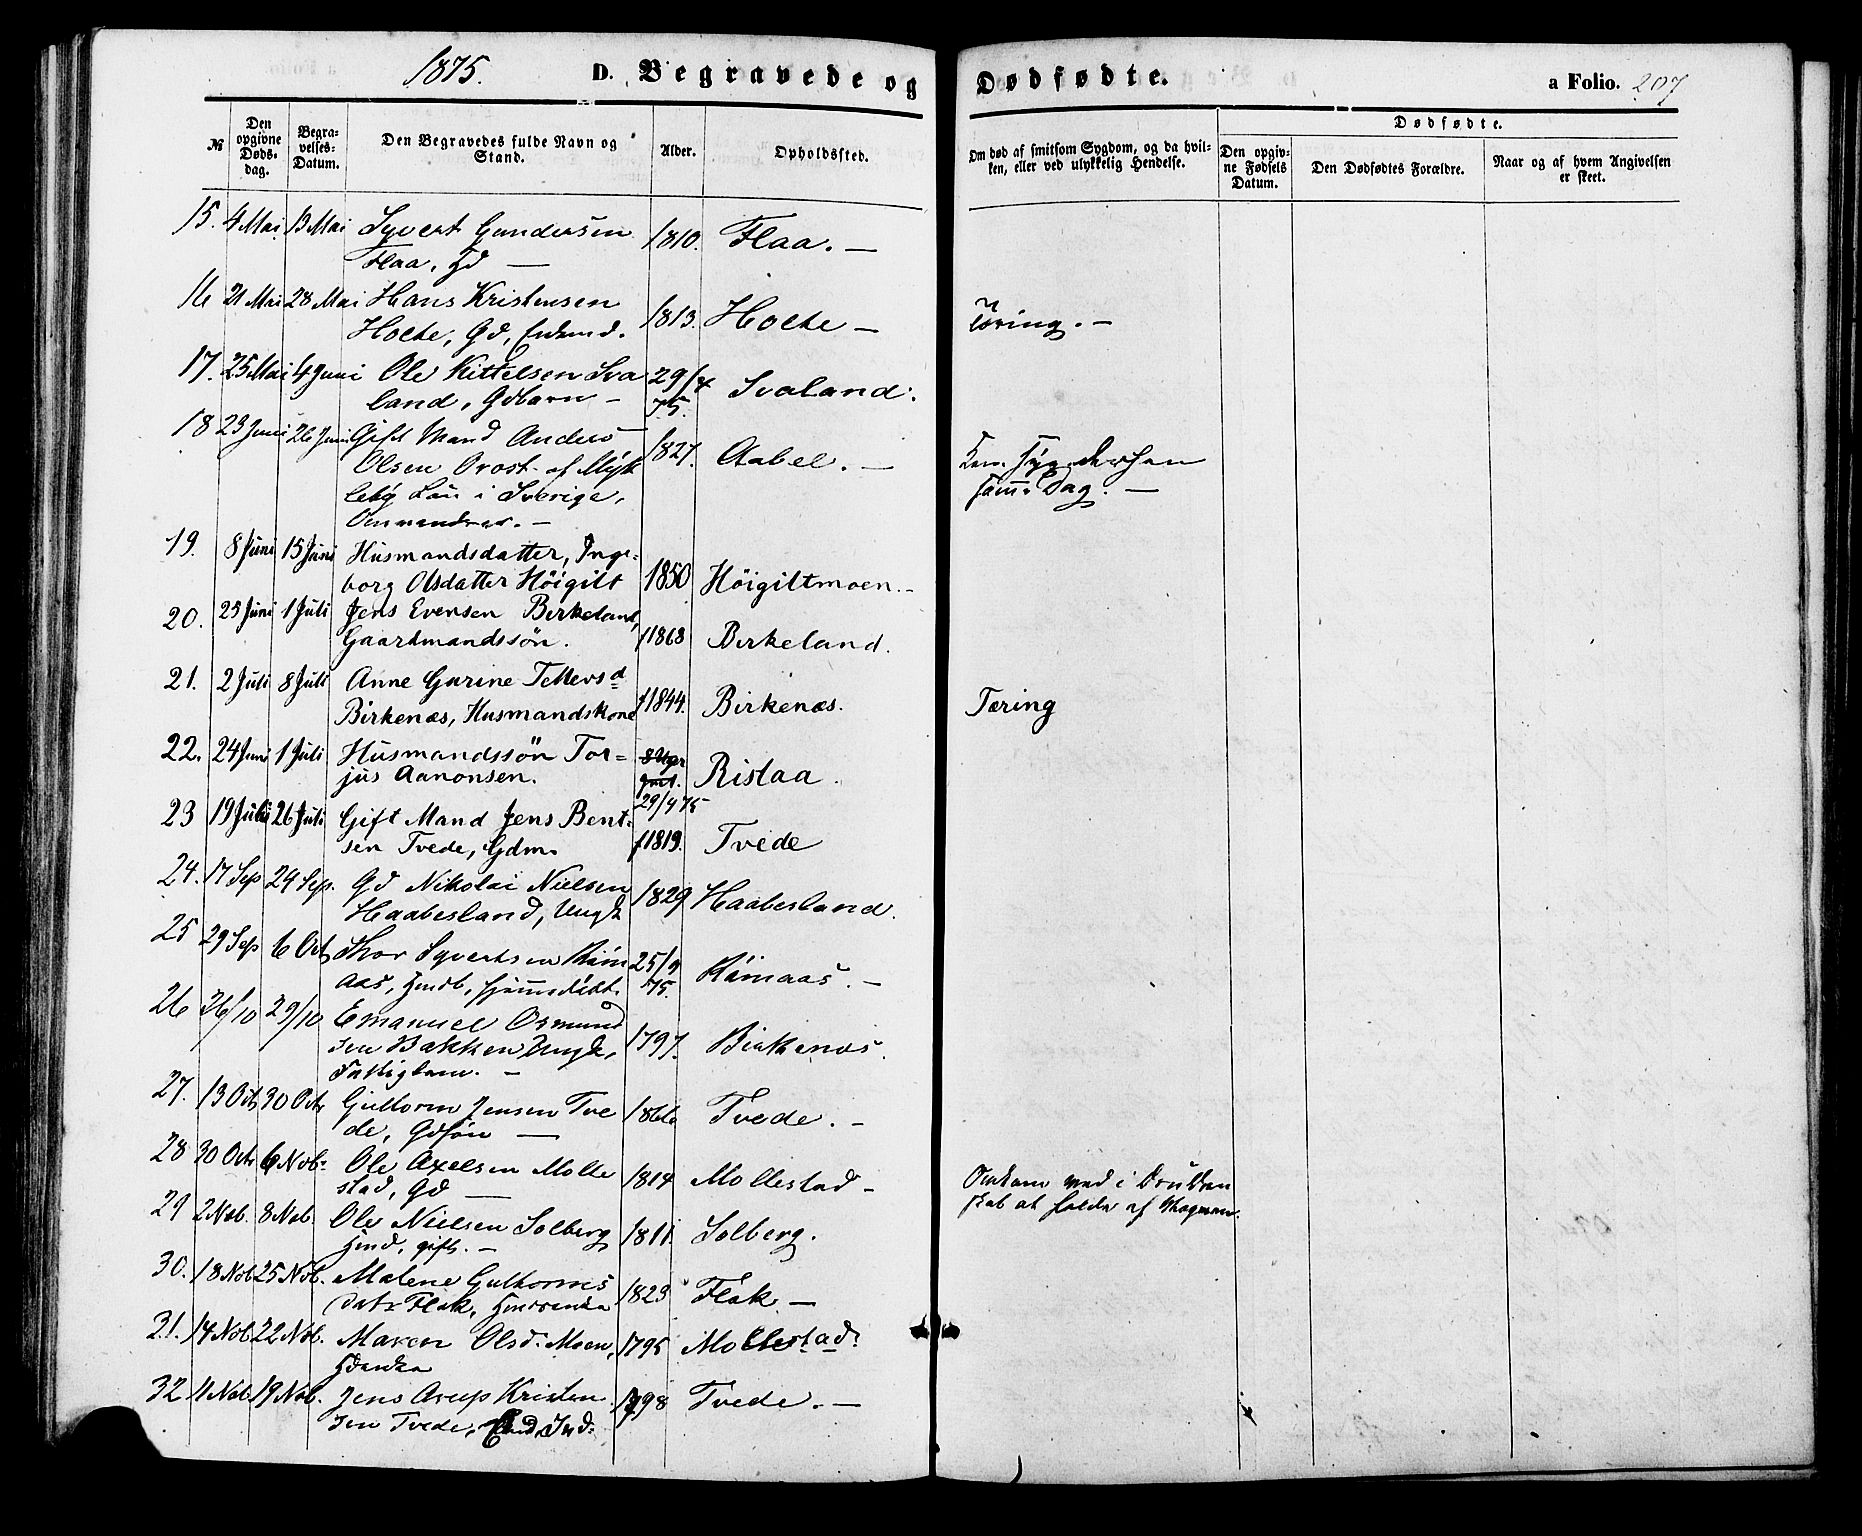 1875.
D. Begravede og
Dødfødte.
a Folio. 207
№
Den opgivne Døds-dag.
Begra-velses-Datum.
Den Begravedes fulde Navn og Stand.
Alder.
Opholdssted.
Om død af smitsom Sygdom, og da hvil-ken, eller ved ulykkelig Hendelse.
Dødfødte.
Den opgiv-ne Fødsels Datum.
Den Dødfødtes Forældre.
Naar og af hvem Angivelsen er skeet.
15. 4 Mai 13 Mai Syvert Gundersen 1810. Flaa. —
Flaa, Gd —
16 21 Mai 28 Mai Hans Kristensen 1813. Holte — Tæring. —
Holte, Gd, Enkemd.
17. 25 Mai 4 Juni Ole Kittelsen Sva 29/4 75. Svaland.
land, Gdbarn —
18 23 Juni 26 Juni Gift Mand Anders 1827. Aabel. —
Olsen Orost af
i Sverige,
Omvandrer. —
Dag. —
19. 8 Juni 15 Juni Husmandsdatter, Inge- 1850 Höigiltmoen. -
borg Olsdatter Höigilt
20. 25 Juni 1 Juli Jens Evensen Birkeland, f 1868 Birkeland.
Gaardmandssön.
21. 2 Juli 8 Juli Anne Gurine Tellevsd f 1844. Birkenæs. Tæring
Birkenæs, Husmandskone
22. 24 Juni 1 Juli Husmandssön Tor- 8 Uger gml. Ristaa.
jus Aanonsen. 29/4 75
23 19 Juli 26 Juli Gift Mand Jens Bent- f 1819. Tvede
sen Tvede, Gdm.
24. 17 Sep 24 Sep. Gd Nikolai Nielsen 1829 Haabesland.
Haabesland, Ungk
25 29 Sep 6 Oct Thor Syvertsen Rim 25/9 75. Rimaas. —
aas, hjemmedøbt.
26 26/10 29/10 Emanuel Osmund 1797. Birkenæs.
sen Bakken Ungk,
Fattiglem. —
27. 13 Oct 30 Oct Guttorm Jensen Tve 1866 Tvede. —
de, Gdsön —
28 30 Oct 6 Nob. Ole Axelsen Molle 1814 Mollestad -
stad, Gd —
Omkom ved i Drukken
skab at falde af Vognen.
29 2 Nob. 8 Nob. Ole Nielsen Solberg 1811. Solberg.
Hmd, gift. —
30. 18 Nob 25 Nob. Malene Guttorms 1823 Flak —
datr Flak,
31. 14 Nob 22 Nob. Maren Olsd. Moen, 1795 Mollestad.
32 11 Nob 19 Nob. Jens Arup Kristen 1798 Tvede. —
sen Tvede,